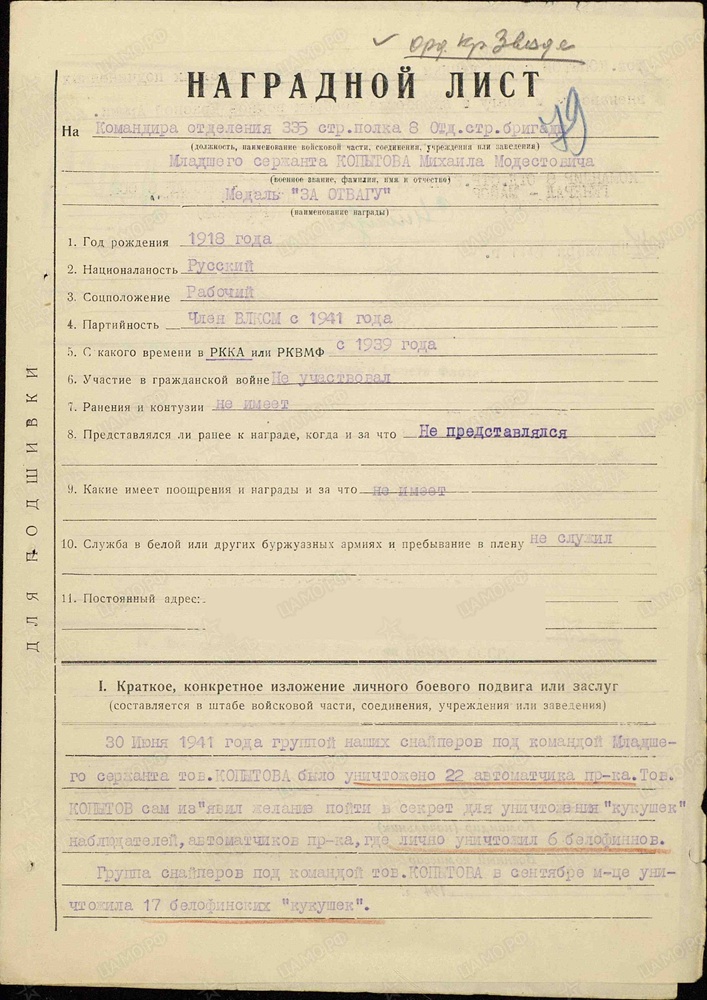 ✓ орд. Кр Звезде
НАГРАДНОЙ ЛИСТ
79
На Командира отделения 335 стр.полка 8 Отд.стр.бригады
(должность, наименование войсковой части, соединения, учреждения или заведения)
Младшего сержанта КОПЫТОВА Михаила Модестовича
(военное звание, фамилия, имя и отчество)
Медаль "ЗА ОТВАГУ"
(наименование награды)
1. Год рождения 1918 года
2. Националаность Русский
3. Соцположение Рабочий
4. Партийность Член ВЛКСМ с 1941 года
5. С какого времени в РККА или РКВМФ с 1939 года
6. Участие в гражданской войне Не участвовал
7. Ранения и контузии не имеет
8. Представлялся ли ранее к награде, когда и за что Не представлялся
9. Какие имеет поощрения и награды и за что не имеет
10. Служба в белой или других буржуазных армиях и пребывание в плену не служил
11. Постоянный адрес:
ДЛЯ ПОДШИВКИ
I. Краткое, конкретное изложение личного боевого подвига или заслуг
(составляется в штабе войсковой части, соединения, учреждения или заведения)
30 Июня 1941 года группой наших снайперов под командой Младше-
го сержанта тов.КОПЫТОВА было уничтожено 22 автоматчика пр-ка. Тов.
КОПЫТОВ сам из"явил желание пойти в секрет для уничтожения "кукушек"
наблюдателей, автоматчиков пр-ка, где лично уничтожил 6 белофиннов.
Группа снайперов под командой тов.КОПЫТОВА в сентябре м-це уни-
чтожила 17 белофинских "кукушек".